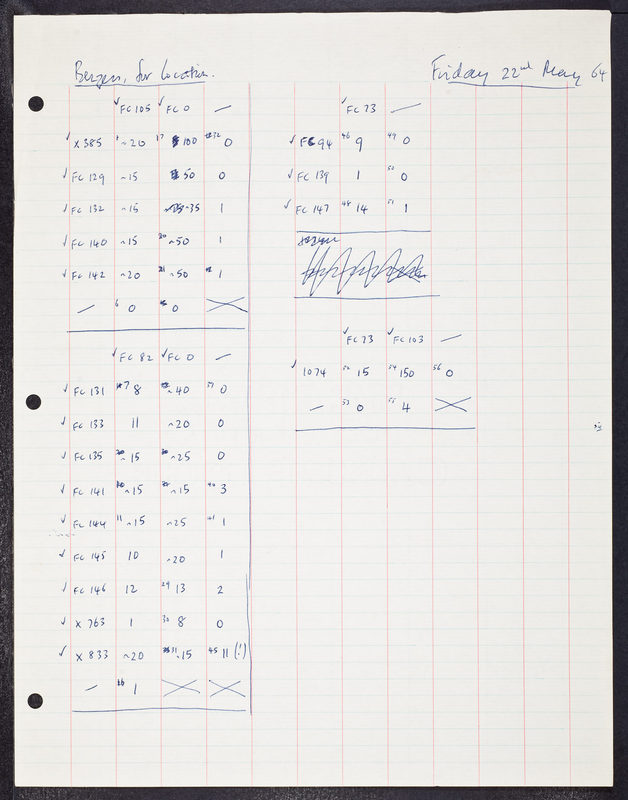 for Location.
Friday 22nd May 64
✓FC 105 ✓FC 0 —
✓ X 385 ~20 17 100 32 0
✓ FC 129 ~15 50 0
✓ FC 132 ~15 ~35 1
✓ FC 140 ~15 20 ~50 1
✓ FC 142 ~20 21 ~50 1
— 6 0 0
✓FC 82 ✓FC 0 —
✓ FC 131 7 8 ~40 39 0
✓ FC 133 11 ~20 0
✓ FC 135 ~15 ~25 0
✓ FC 141 ~15 ~15 40 3
✓ FC 144 11 ~15 ~25 41 1
✓ FC 145 10 ~20 1
✓ FC 146 12 29 13 2
✓ X 763 1 30 8 0
✓ X 833 ~20 31 ~15 45 11 (!)
— 16 1
✓FC 73 —
✓ FC 94 46 9 49 0
✓ FC 139 1 50 0
✓ FC 147 48 14 51 1
✓FC 73 ✓FC 103 —
✓ 1074 52 15 54 150 56 0
— 53 0 55 4